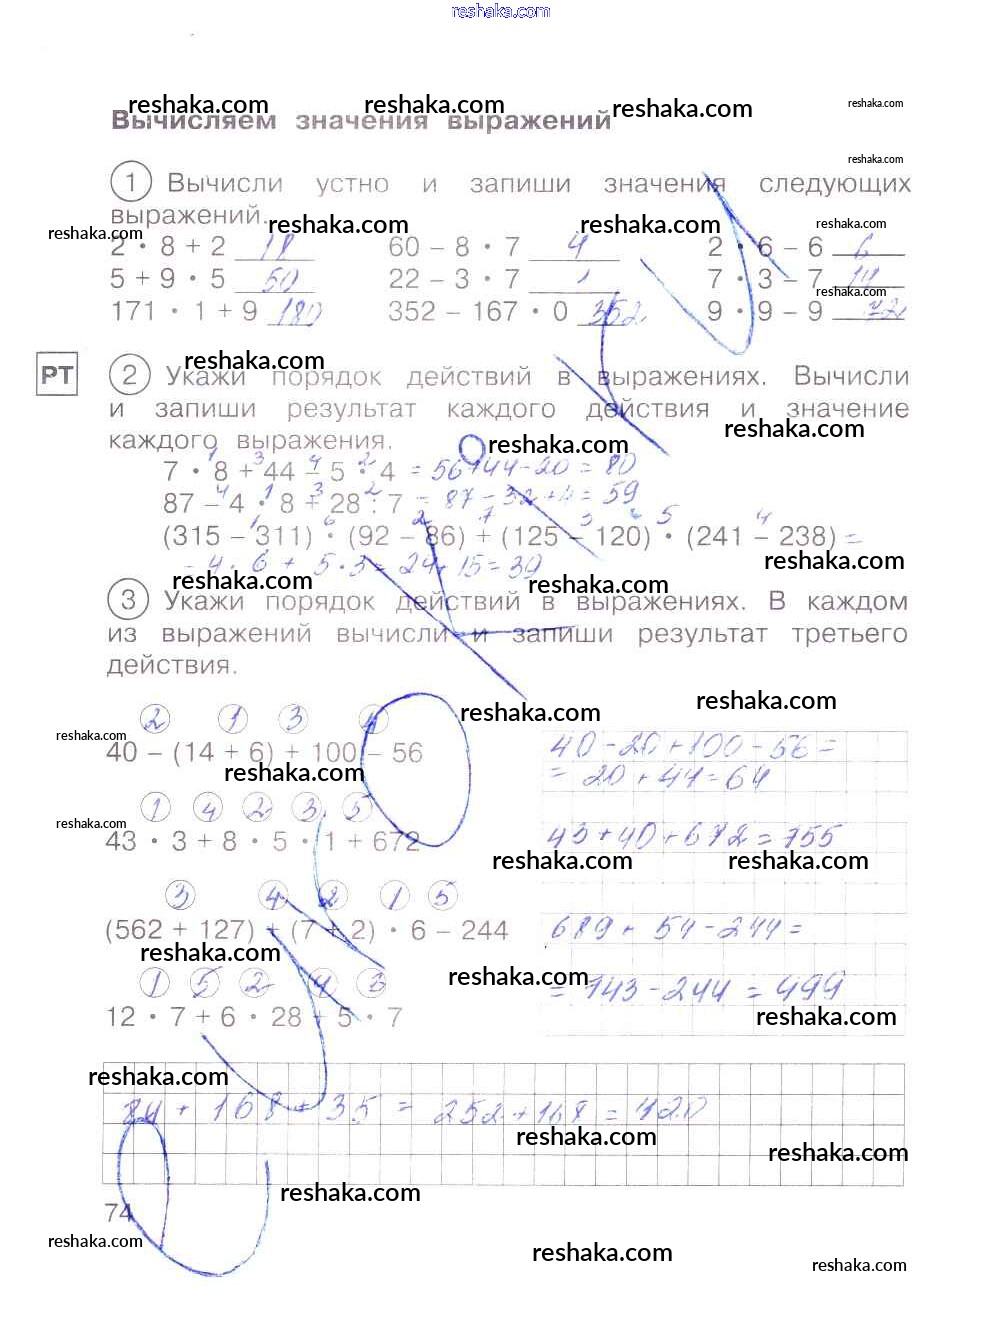 reshaka.com
reshaka.com reshaka.com reshaka.com reshaka.com
Вычисляем значения выражений
reshaka.com
1 Вычисли устно и запиши значения следующих
выражений.
reshaka.com reshaka.com reshaka.com reshaka.com
2 · 8 + 2 18 60 – 8 · 7 4 2 · 6 – 6 6
5 + 9 · 5 50 22 – 3 · 7 1 7 · 3 – 7 14
reshaka.com
171 · 1 + 9 180 352 – 167 · 0 352 9 · 9 – 9 72
reshaka.com
РТ 2 Укажи порядок действий в выражениях. Вычисли
и запиши результат каждого действия и значение
reshaka.com
каждого выражения.
reshaka.com
1 3 4 2
7 · 8 + 44 – 5 · 4 = 56+44-20 = 80
4 1 3 2
87 – 4 · 8 + 28 : 7 = 87 - 32 + 4 = 59
1 6 2 7 3 5 4
(315 – 311) · (92 – 86) + (125 – 120) · (241 – 238) =
reshaka.com
- 4 · 6 + 5 · 3 = 24 + 15 = 39
reshaka.com reshaka.com
3 Укажи порядок действий в выражениях. В каждом
из выражений вычисли и запиши результат третьего
действия.
reshaka.com
reshaka.com
2 1 3 4
reshaka.com
40 – (14 + 6) + 100 – 56 40 - 20 + 100 - 56 =
reshaka.com
= 20 + 44 = 64
1 4 2 3 5
reshaka.com
43 · 3 + 8 · 5 · 1 + 672 43 + 40 + 672 = 755
reshaka.com reshaka.com
3 4 2 1 5
(562 + 127) + (7 + 2) · 6 – 244 689 + 54 - 244 =
reshaka.com
reshaka.com
1 5 2 4 3
= 743 - 244 = 499
12 · 7 + 6 · 28 + 5 · 7
reshaka.com
reshaka.com
84 + 168 + 35 = 252 + 168 = 420
reshaka.com
reshaka.com
reshaka.com
74
reshaka.com
reshaka.com
reshaka.com